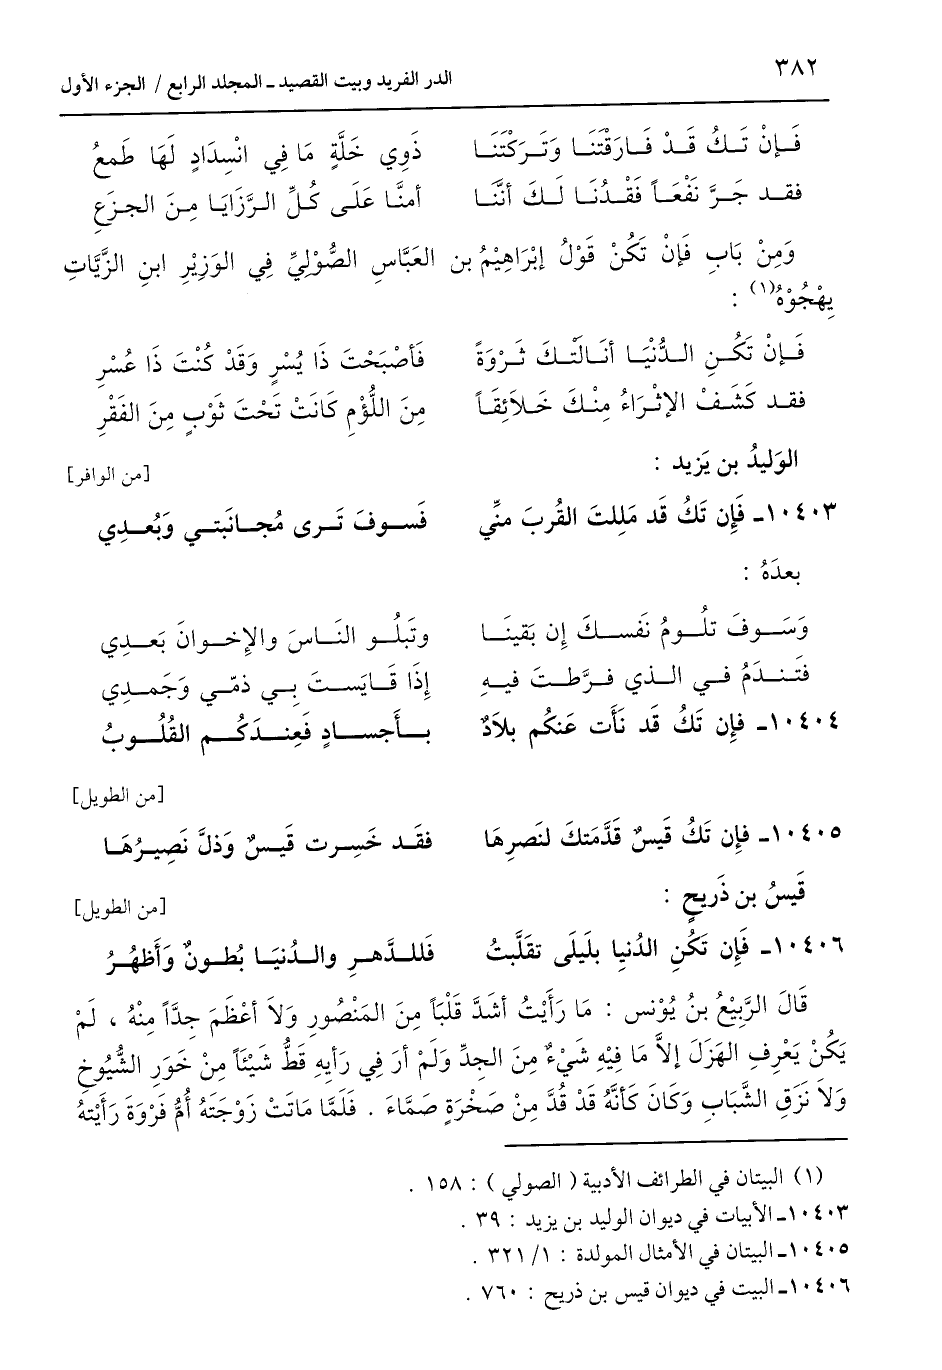 ٣٨٢
الدر الفريد وبيت القصيد ـ المجلد الرابع / الجزء الأول
فَـإِنْ تَـكُ قَـدْ فَـارَقْتَنَـا وَتَـرَكْتَنَـا ذَوِي خَلَّةٍ مَا فِي انْسِدَادٍ لَهَا طَمعُ
فقـد جَـرَّ نَفْعَـاً فَقْـدُنَا لَـكَ أَنَّنَـا أمنَّا عَلَـى كُـلِّ الـرَّزَايَـا مِـنَ الجـزَعِ
وَمِنْ بَابِ فَإِنْ تَكُنْ قَوْلُ إبْرَاهِيْمُ بن العَبَّاسِ الصُّوْلِيِّ فِي الوَزِيْرِ ابنِ الزَّيَّاتِ
يِهْجُوْهُ(١) :
فَـإِنْ تَكُـنِ الـدُّنْيَـا أنَـالَتْـكَ ثَـرْوَةً فَأصْبَحْتَ ذَا يُسْرٍ وَقَدْ كُنْتَ ذَا عُسْرِ
فقـد كَشَـفْ الإثْـرَاءُ مِنْـكَ خَـلاَئِقَـاً مِنَ اللُّؤْمِ كَانَتْ تَحْتَ ثَوْبٍ مِنَ الفَقْرِ
الوَليدُ بن يَزيد :
[من الوافر]
١٠٤٠٣ـ فَإِن تَكُ قَد مَلِلتَ القُربَ منِّي فَسـوفَ تَـرى مُجـانَبتـي وَبُعـدِي
بعدَهُ :
وَسَـوفَ تلُـومُ نَفسـكَ إن بَقينَـا وتَبلُـو النَّـاسَ والإخـوانَ بَعـدِي
فَتنـدَمُ فـي الـذي فـرَّطـتَ فيـهِ إِذَا قَـايَسـتَ بِـي ذمّـي وَحَمـدِي
١٠٤٠٤ـ فإن تَكُ قَد نَأَت عَنكُم بلاَدٌ بـأَجسـادٍ فَعِنـدَكُـم القُلُـوبُ
[من الطويل]
١٠٤٠٥ـ فإن تَكُ قَيسٌ قَدَّمَتكَ لنَصرِهَا فقَـد خَسِـرت قَيـسٌ وَذلَّ نَصِيـرُهَـا
قَيسُ بن ذَريحٍ :
[من الطويل]
١٠٤٠٦ـ فَإِن تَكُنِ الدُنيا بلَيلَى تقَلَّبتُ فَللـدَّهـرِ والـدُنيَـا بُطـونٌ وَأظهُـرُ
قَالَ الرَّبِيْعُ بنُ يُوْنس : مَا رَأَيْتُ أَشَدَّ قَلْبَاً مِنَ المَنْصُورِ وَلاَ أعْظَمَ جِدَّاً مِنْهُ ، لَمْ
يَكُنْ يَعْرِفِ الهَزَلَ إلاَّ مَا فِيْهِ شَيْءٌ مِنَ الجِدِّ وَلَمْ أرَ فِي رَأيِهِ قَطُّ شَيْئَاً مِنْ خَوَرِ الشُّيُوخِ
وَلاَ نَزَقِ الشَّبَابِ وَكَانَ كَأنَّهُ قَدْ قُدَّ مِنْ صَخْرَةٍ صَمَّاءَ . فَلَمَّا مَاتَتْ زَوْجَتَهُ أُمُّ فَرْوَةَ رَأيْتهُ
(١) البيتان في الطرائف الأدبية ( الصولي ) : ١٥٨ .
١٠٤٠٣ـ الأبيات في ديوان الوليد بن يزيد : ٣٩ .
١٠٤٠٥ـ البيتان في الأمثال المولدة : ١/ ٣٢١ .
١٠٤٠٦ـ البيت في ديوان قيس بن ذريح : ٧٦٠ .